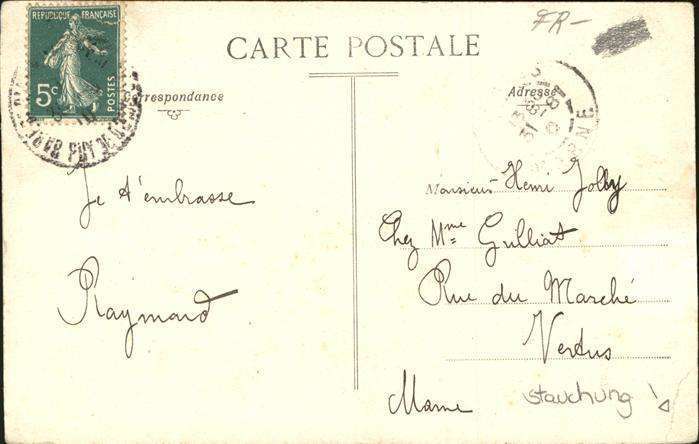 FR-
RÉPUBLIQUE FRANÇAISE
POSTES
5c
CARTE POSTALE
Correspondance
Adresse
Je t'embrasse
Raymond
Monsieur Henri Jolly
Chez Mme Gulliat
Rue du Marché
Vertus
Marne
Stauchung!